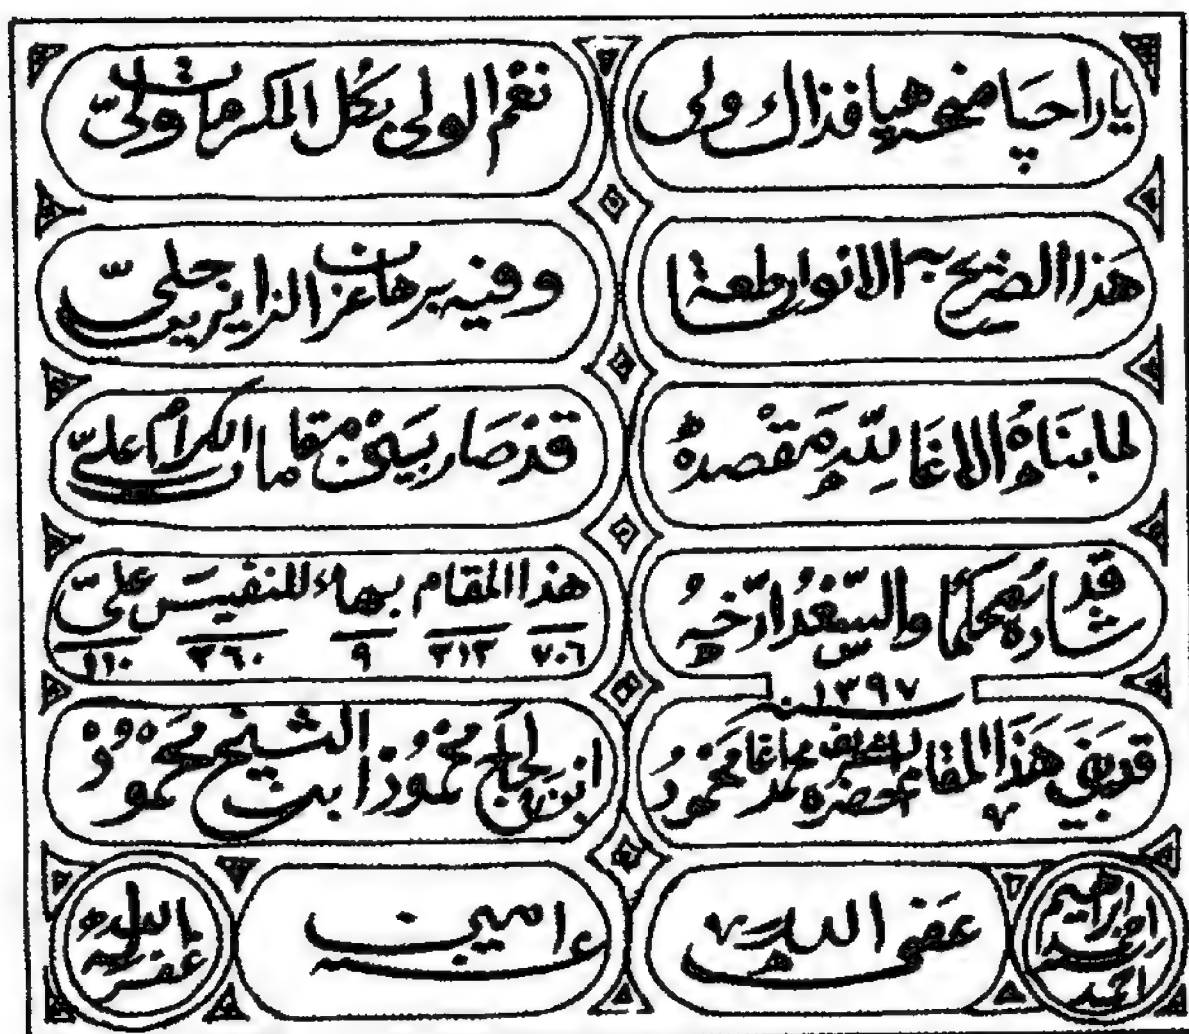 يا راجيا ضحوهيا فذاك ولي
نعم الولي بكل المكرمات ولي
هذا الضريح به الانوار طعة
وفيه برهان عز الزايرين جلي
لما بناه الاغا لله مقصده
قد صار بيتى مقامات الكرام علي
قد شاده محكما والسعد ارخه
هذا المقام بهاء للنفيس علي
٧٠٦ ٢١٣ ٩ ٣٦٠ ١١٠
سنة ١٣٩٧
قد بنى هذا المقام الشريف حضرة محمد اغا محمود
ابن الحاج محمود ابن الشيخ محمود
عفى الله
ءامين
ابراهيم احمد
يا الله